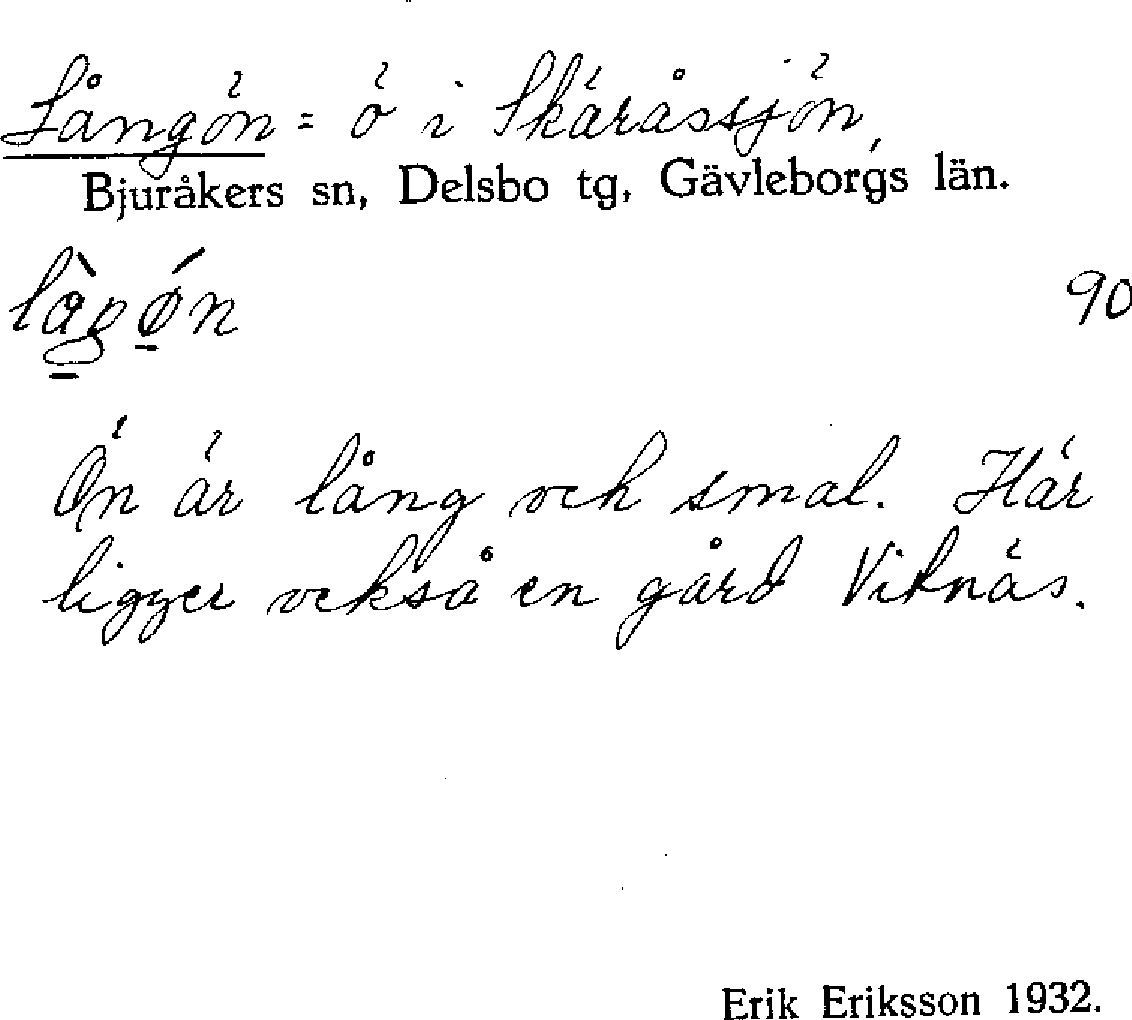 Långön = ö i Skäråssjön,
Bjuråkers sn, Delsbo tg, Gävleborgs län.
90
Ön är lång och smal. Här
ligger också en gård Vitnäs.
Erik Eriksson 1932.